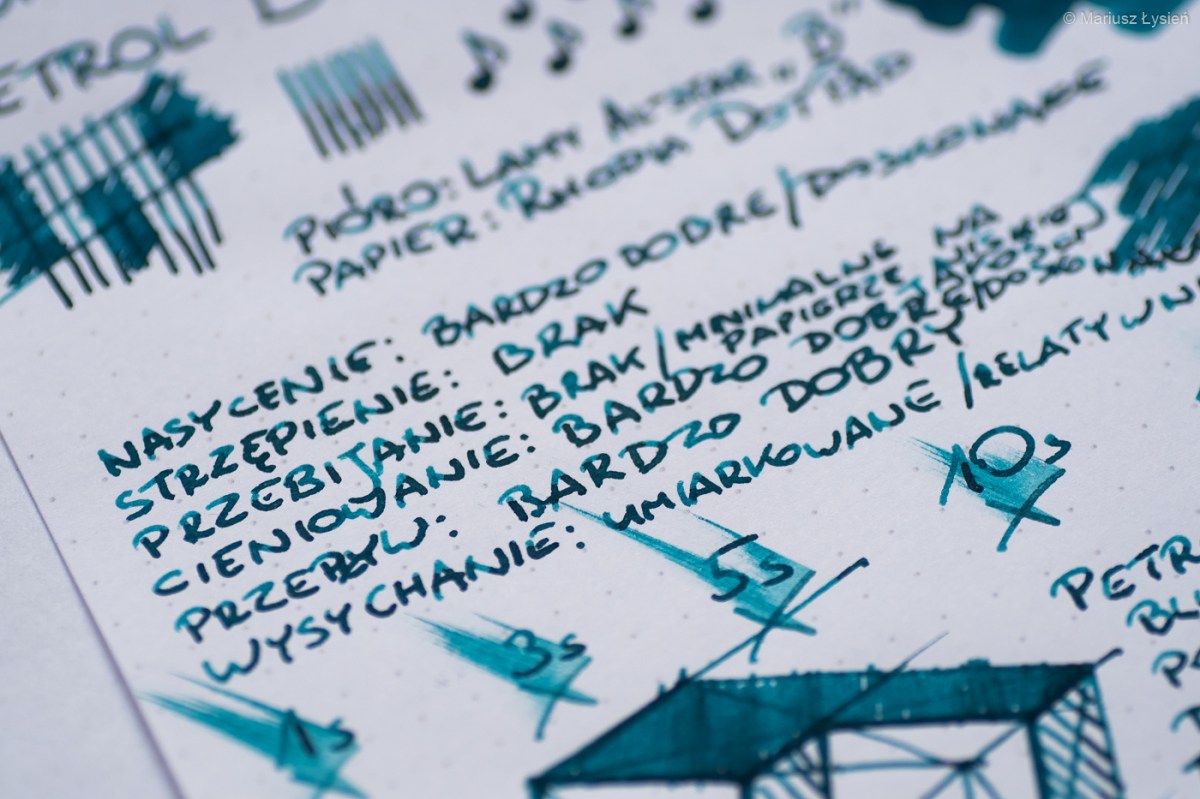 © Mariusz Łysień
ETROL
PIÓRO: LAMY AL-STAR „B"
PAPIER: RHODIA DOTPAD
NASYCENIE: BARDZO DOBRE/DOSKONAŁE
STRZĘPIENIE: BRAK
PRZEBIJANIE: BRAK/MINIMALNE NA
PAPIERZE NISKIEJ
JAKOŚCI
CIENIOWANIE: BARDZO DOBRE/DOSKONAŁE
PRZEPŁYW: BARDZO DOBRY
WYSYCHANIE: UMIARKOWANE/RELATYWN
1s
3s
5s
10s
PETR
BL